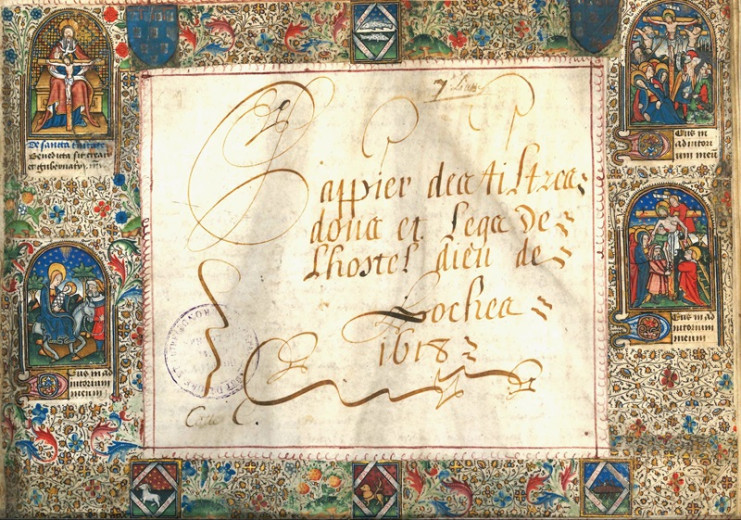 Pappier des tiltres
dons et legs de
Lhostel dieu de
Loches
1618
De sancta trinitate
Benedicta sit creatrix
et gubernatrix
Deus in
adiutorium
meum
Deus in
adiutor
ium meu
Deus in ad
iutorium
meum